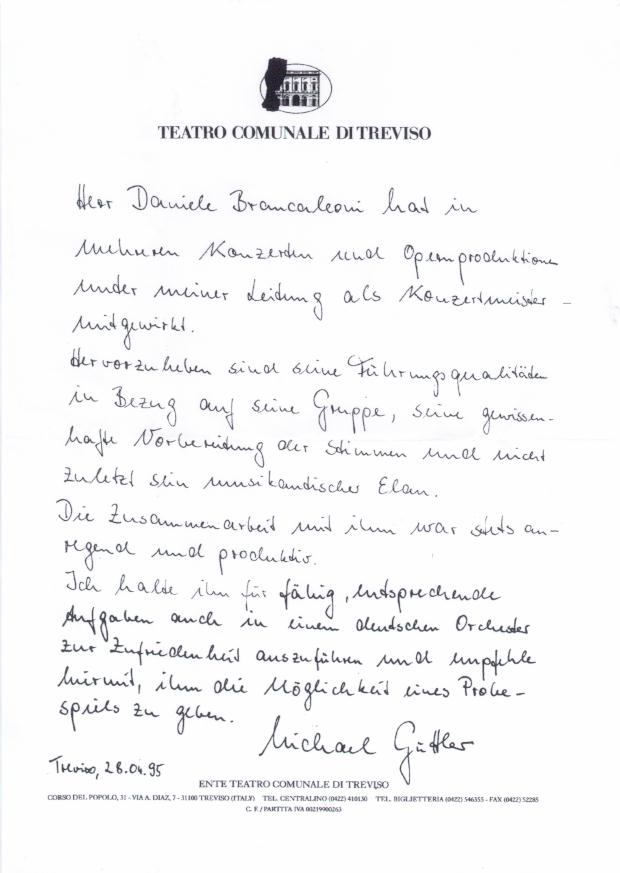 TEATRO COMUNALE DI TREVISO
Herr Daniele Brancaleoni hat in
mehreren Konzerten und Opernproduktionen
unter meiner Leitung als Konzertmeister
mitgewirkt.
Hervorzuheben sind seine Führungsqualitäten
in Bezug auf seine Gruppe, seine gewissen-
hafte Vorbereitung der Stimmen und nicht
zuletzt sein musikantischer Elan.
Die Zusammenarbeit mit ihm war stets an-
regend und produktiv.
Ich halte ihn für fähig, entsprechende
Aufgaben auch in einem deutschen Orchester
zur Zufriedenheit auszuführen und empfehle
hiermit, ihm die Möglichkeit eines Probe-
spiels zu geben.
Michael Güttler
Treviso, 28.04.95
ENTE TEATRO COMUNALE DI TREVISO
CORSO DEL POPOLO, 31 - VIA A. DIAZ, 7 - 31100 TREVISO (ITALY) TEL. CENTRALINO (0422) 410130 TEL. BIGLIETTERIA (0422) 546355 - FAX (0422) 52285
C. F. / PARTITA IVA 00219900263